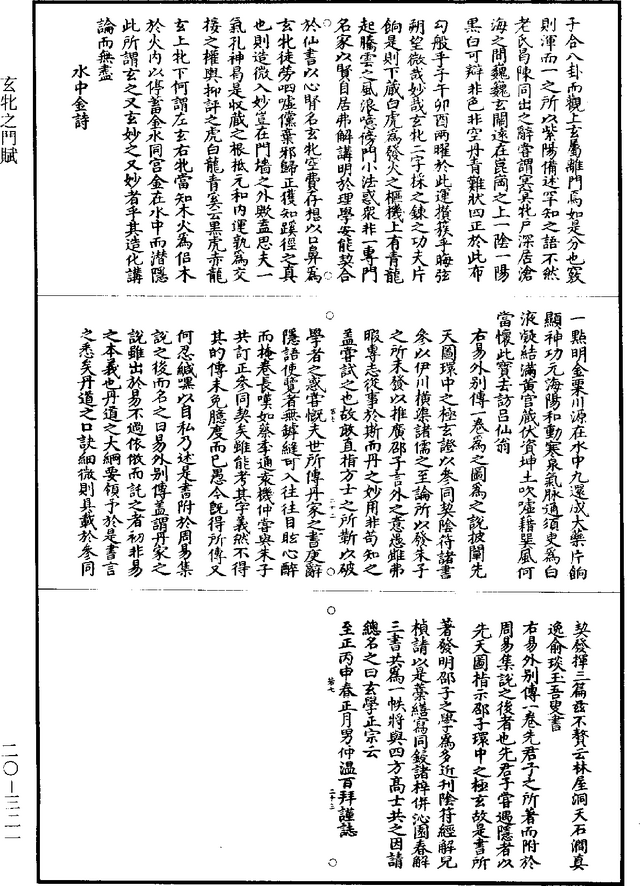 子合八卦而觀上玄屬離門為如是分也竅
則渾而一之所以紫陽備述罕知之語不然
老氏曷陳同出之辭嘗謂冥冥牝戶深居滄
海之間巍巍玄關遠在崑崗之上一陰一陽
黑白可辯非色非空丹青難狀四正於此布
勾般乎子午卯酉兩曜於此運攢簇乎晦弦
朔望微哉妙哉玄牝二字採之鍊之功夫片
餉是則下藏白虎為發火之樞機上有青龍
起騰雲之風浪噫傍門小法惑眾非一專門
名家以賢自居弗解講明於理學安能契合
於仙書以心腎名玄牝空費存想以口鼻為
玄牝徒勞呬噓儻棄邪歸正獲知蹊徑之真
也則造微入妙豈在門墻之外歟蓋思夫一
氣孔神曷是收藏之根柢元和內運孰為交
接之權輿抑評之虎白龍青寔云黑虎赤龍
玄上牝下何謂左玄右牝當知木火為侶木
於火內以停蓄金水同宮金在水中而潛隱
此所謂玄之又玄妙之又妙者乎其造化講
論而無盡
水中金詩
一點明金粟川源在水中九還成大藥片餉
顯神功元海陽和動寒泉氣脈通須臾為白
液凝結滿黃宮藏伏資坤土吹噓藉巽風何
當懷此寶去訪呂仙翁
右易外別傳一卷為之圖為之說披闡先
天圖環中之極玄證以參同契陰符諸書
參以伊川橫渠諸儒之至論所以發朱子
之所未發以推廣邵子言外之意愚雖弗
暇專志從事於斯而丹之妙用非苟知之
蓋嘗試之也故敢直指方士之所靳以破
學者之惑嘗慨夫世所傳丹家之書廋辭
隱語使覽者無罅縫可入往往目眩心醉
而掩卷長嘆如蔡季通袁機仲嘗與朱子
共訂正參同契矣雖能考其字義然不得
其的傳未免臆度而已愚今既得所傳又
何忍緘嘿以自私乃述是書附於周易集
說之後而名之曰易外別傳蓋謂丹家之
說雖出於易不過依倣而託之者初非易
之本義也丹道之大綱要領予於是書言
之悉矣丹道之口訣細微則具載於參同
契發揮三篇茲不贅云林屋洞天石澗真
逸俞琰玉吾叟書
右易外別傳一卷先君子之所著而附於
周易集說之後者也先君子嘗遇隱者以
先天圖指示邵子環中之極玄故是書所
著發明邵子之學為多近刊陰符經解兄
楨請以是葉繕寫同鋟諸梓併沁園春解
三書共為一帙將與四方高士共之因請
總名之曰玄學正宗云
至正丙申春正月男仲溫百拜謹誌
若七
二十二
二十三
玄牝之門賦
二〇—三二一